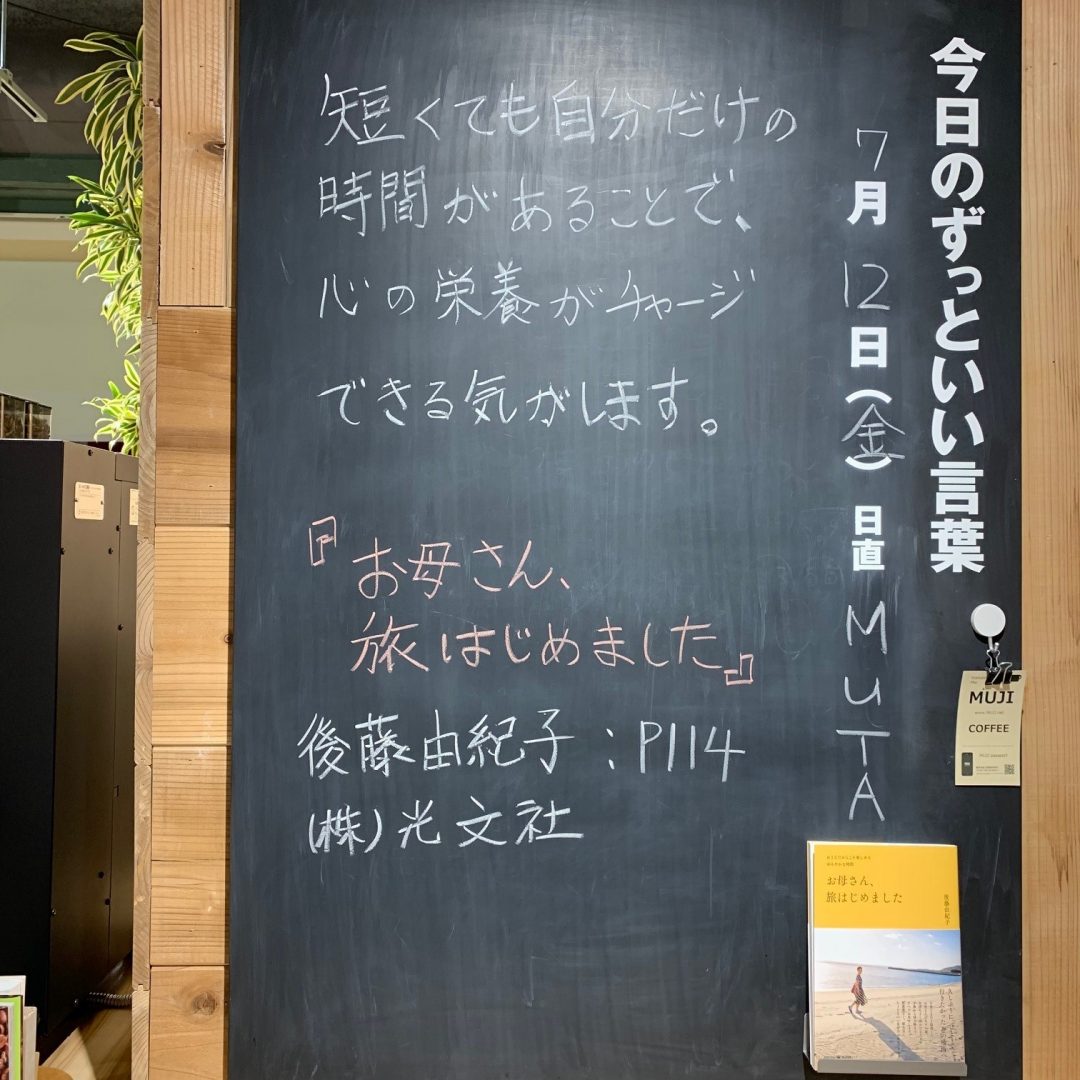 今日のずっといい言葉
7月12日(金) 日直 MuTA
短くても自分だけの
時間があることで、
心の栄養がチャージ
できる気がします。
『お母さん、
旅はじめました』
後藤由紀子:P114
(株)光文社
MUJI
COFFEE
お母さん、
旅はじめました
後藤由紀子